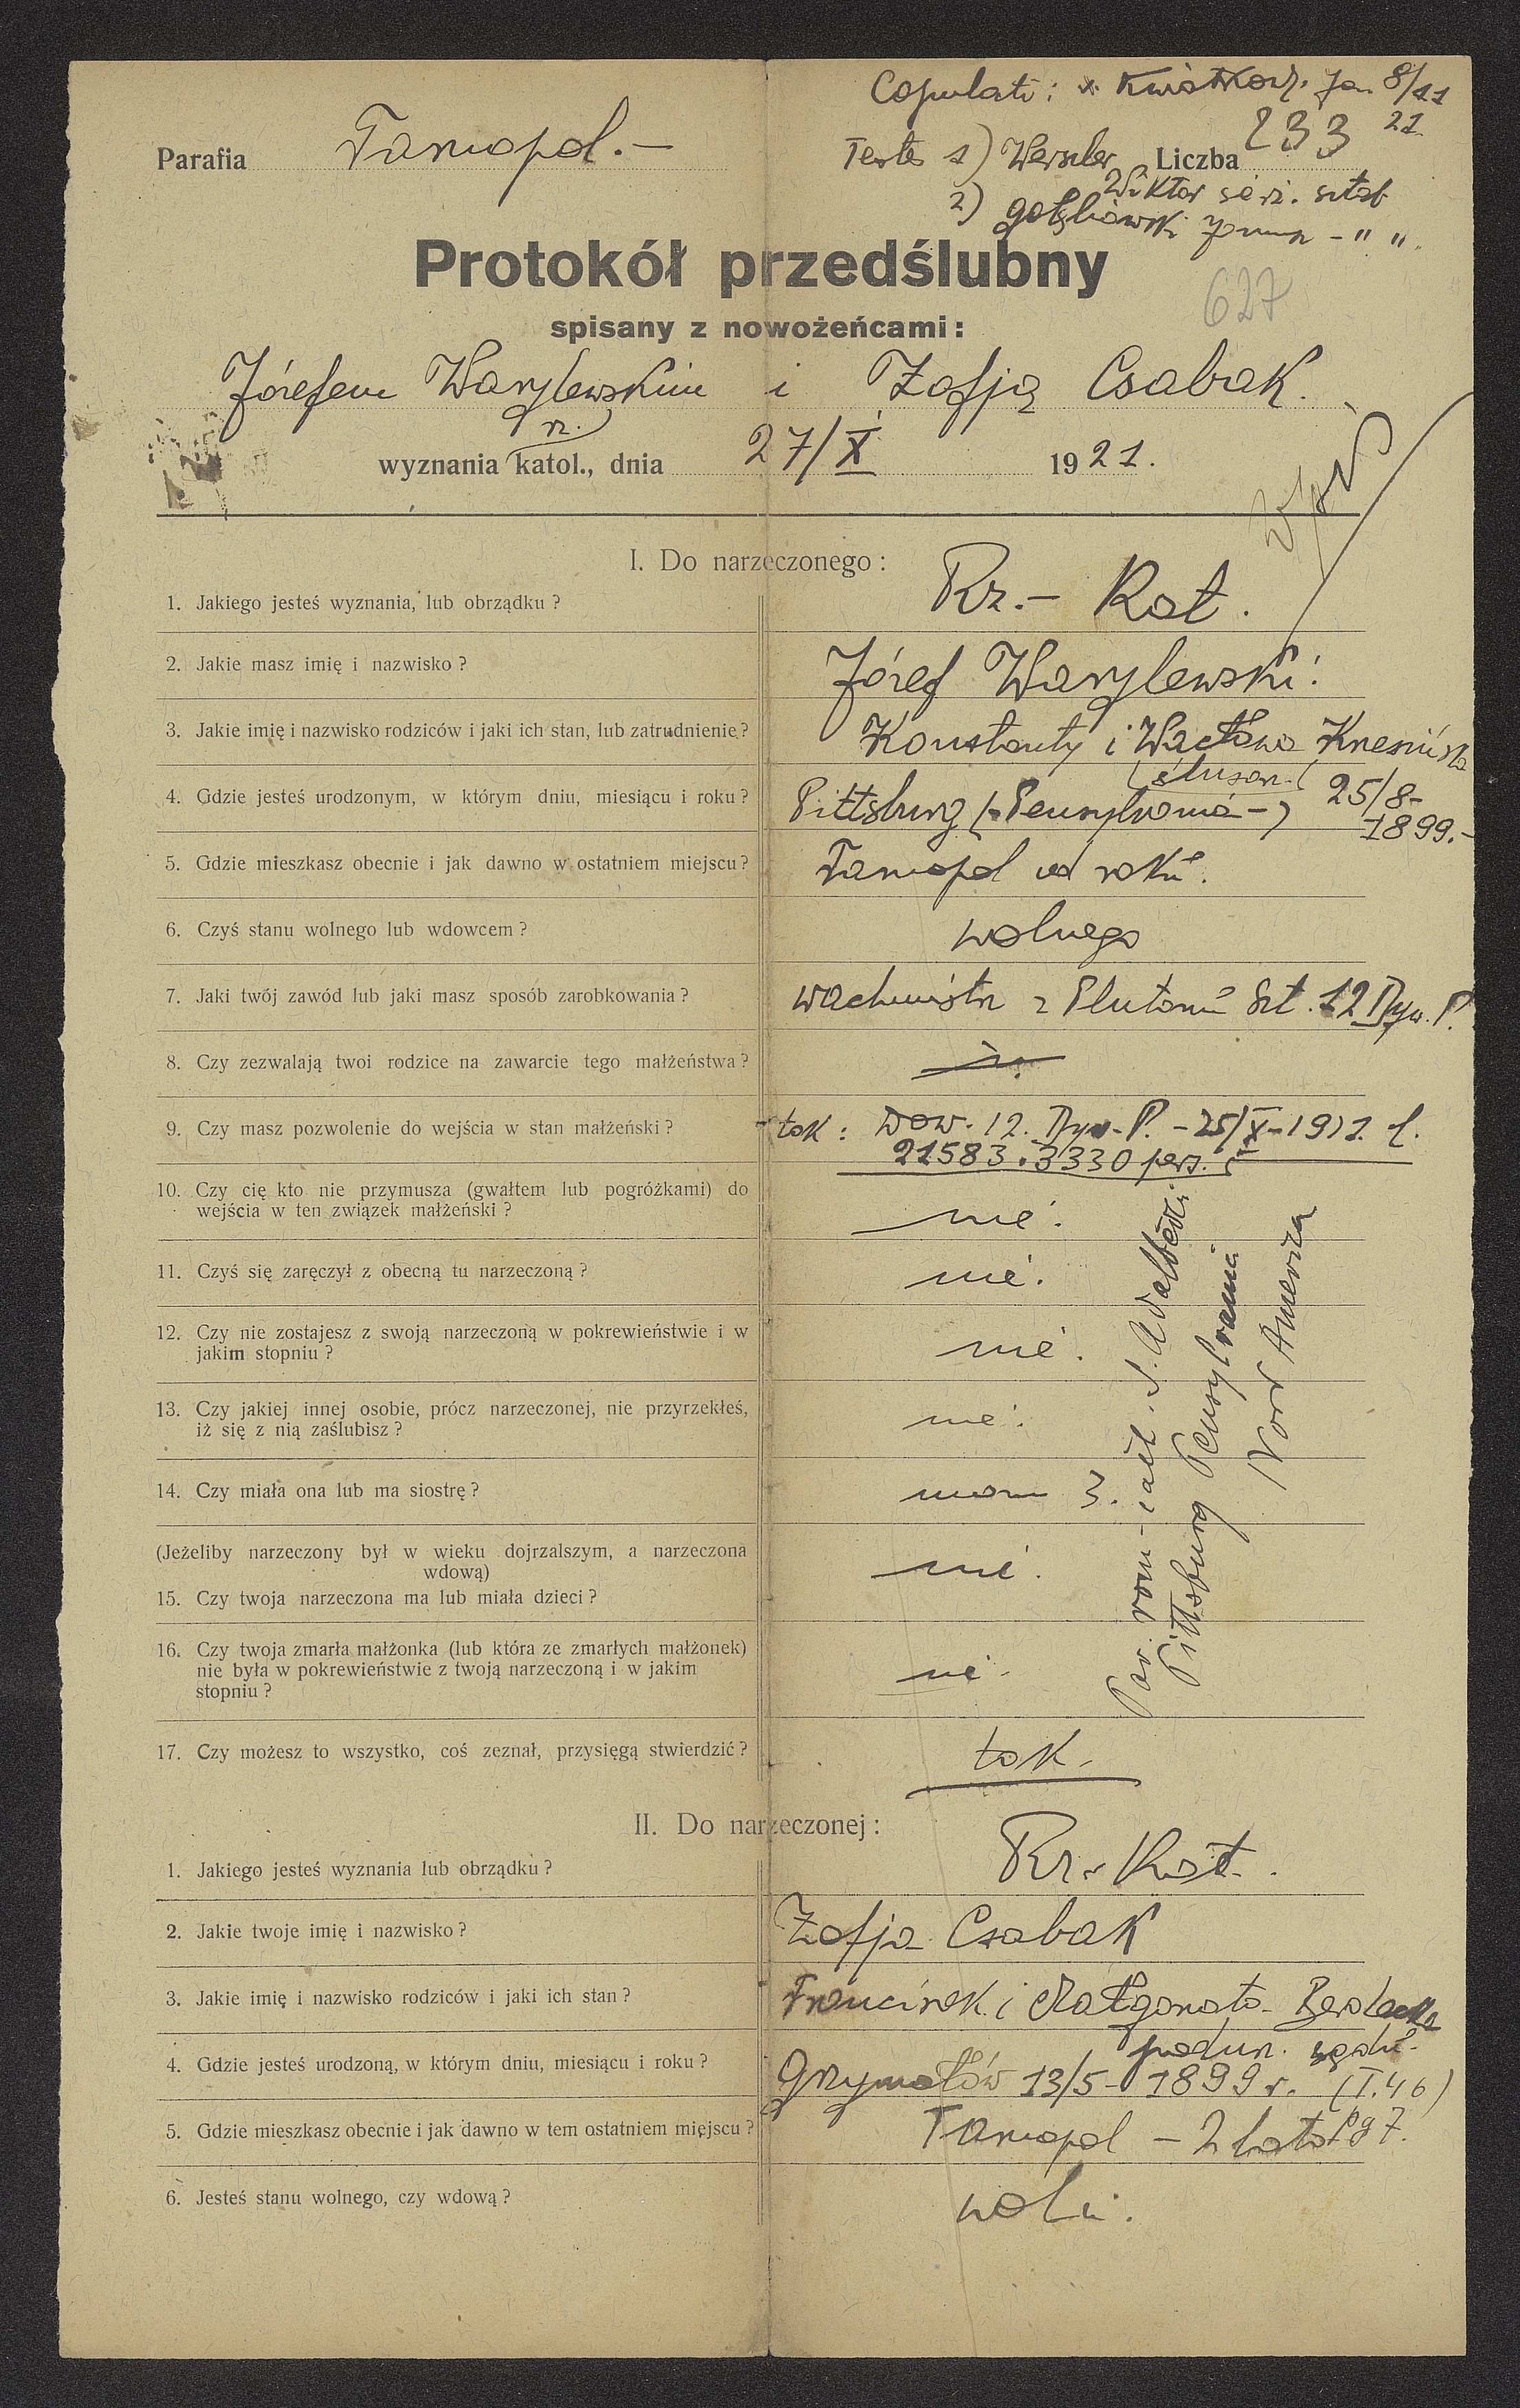 Copulati: x. Kwiatkow. Jan 8/11
21
Parafia Tarnopol.–
Testes 1) Werszler Liczba 233
Wiktor sierż. sztab
2)
– " ".
Protokół przedślubny
627
spisany z nowożeńcami:
Józefem Warylewskim i Zofją Csabak.
rz.
wyznania katol., dnia 27/X 1921.
I. Do narzeczonego:
1. Jakiego jesteś wyznania, lub obrządku? Rz.– Kat.
2. Jakie masz imię i nazwisko? Józef Warylewski.
3. Jakie imię i nazwisko rodziców i jaki ich stan, lub zatrudnienie? Konstanty i Wacława
(ślusarz)
4. Gdzie jesteś urodzonym, w którym dniu, miesiącu i roku? Pittsburg (–Pensylvania–) 25/8–
1899.–
5. Gdzie mieszkasz obecnie i jak dawno w ostatniem miejscu? Tarnopol od roku.
6. Czyś stanu wolnego lub wdowcem? wolnego
7. Jaki twój zawód lub jaki masz sposób zarobkowania? wachmistrz z Plutonu Szt. 12 Dyw. P.
8. Czy zezwalają twoi rodzice na zawarcie tego małżeństwa?
9. Czy masz pozwolenie do wejścia w stan małżeński? tak: Dow. 12. Dyw. P. – 25/X – 1921. l.
21583.3330 pers.
10. Czy cię kto nie przymusza (gwałtem lub pogróżkami) do
wejścia w ten związek małżeński? nie.
11. Czyś się zaręczył z obecną tu narzeczoną? nie.
12. Czy nie zostajesz z swoją narzeczoną w pokrewieństwie i w
jakim stopniu? nie.
13. Czy jakiej innej osobie, prócz narzeczonej, nie przyrzekłeś,
iż się z nią zaślubisz? nie.
14. Czy miała ona lub ma siostrę? mam 3.
(Jeżeliby narzeczony był w wieku dojrzalszym, a narzeczona
wdową)
15. Czy twoja narzeczona ma lub miała dzieci? nie.
16. Czy twoja zmarła małżonka (lub która ze zmarłych małżonek)
nie była w pokrewieństwie z twoją narzeczoną i w jakim
stopniu? nie.
Par. rom-cath. S. Adalberti
Pittsburg Pensylvania
Nord Amerika
17. Czy możesz to wszystko, coś zeznał, przysięgą stwierdzić? tak.
II. Do narzeczonej:
1. Jakiego jesteś wyznania lub obrządku? Rz.- Kat.
2. Jakie twoje imię i nazwisko? Zofja Csabak
3. Jakie imię i nazwisko rodziców i jaki ich stan? Franciszek i Małgorzata
4. Gdzie jesteś urodzoną, w którym dniu, miesiącu i roku? Grzymałów 13/5– 1899 r. (T.46)
5. Gdzie mieszkasz obecnie i jak dawno w tem ostatniem miejscu? Tarnopol – 2 lata p 97.
6. Jesteś stanu wolnego, czy wdową? woln.